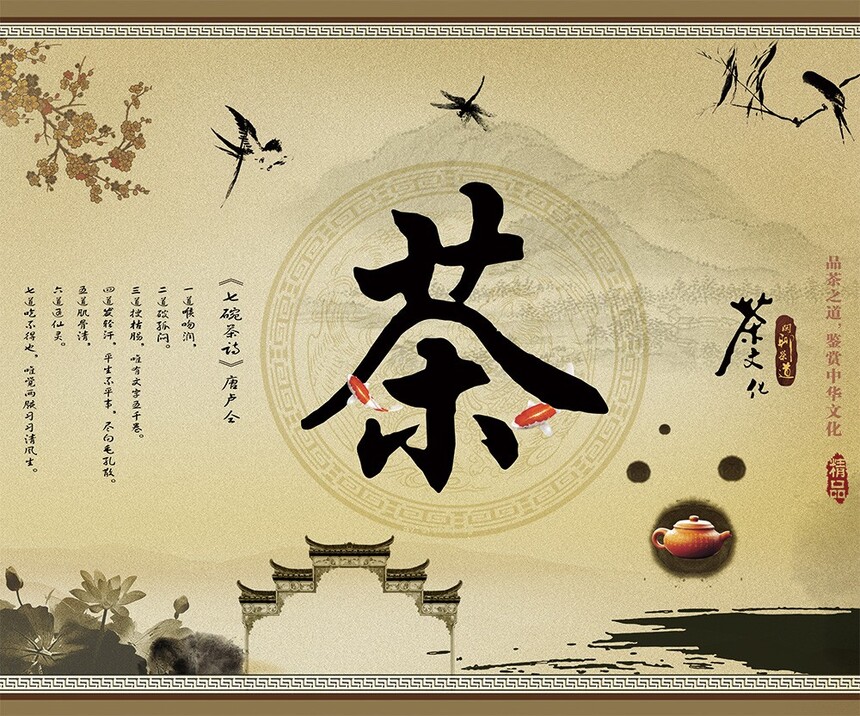 品茶之道,鉴赏中华文化
精品
茶文化
茶道
茶
《七碗茶诗》唐卢仝
一道喉吻润,
二道破孤闷。
三道搜枯肠,唯有文字五千卷。
四道发轻汗,平生不平事,尽向毛孔散。
五道肌骨清,
六道通仙灵。
七道吃不得也,唯觉两腋习习清风生。